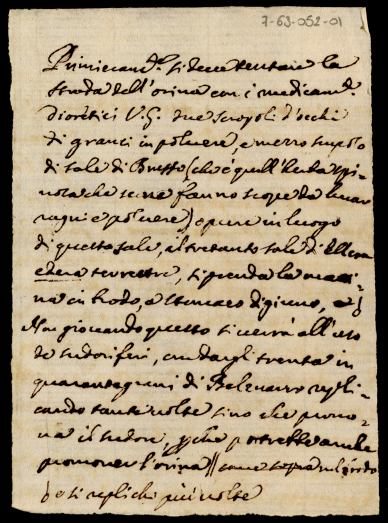 7-63-052-01
Primieram.te si deve tentare la
strada dell'orina con i medicam.ti
dioretici V.G. due scropoli d'occhi
di granci in polvere, e mezzo scropolo
di sale di Brusco (che è quell'herba spi
nosa che se ne fanno scope da levar
ragni e polvere) o pure in luogo
di questo sale, altretanto sale di Ellera
edera terrestre, si prenda la matti
na in brodo, a stomaco digiuno, e
Non giovando questo si verrà all'uso
de sudoriferi, con dargli trenta in
quaranta grani di Belzuarro repli
cando tante volte sino che promo
va il sudore, che potrebbe anche
promover l'orina come sopra
e si replichi più volte